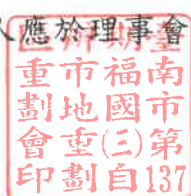 應於理事會
南市第137
福國(三)自
市地重劃
重劃會印